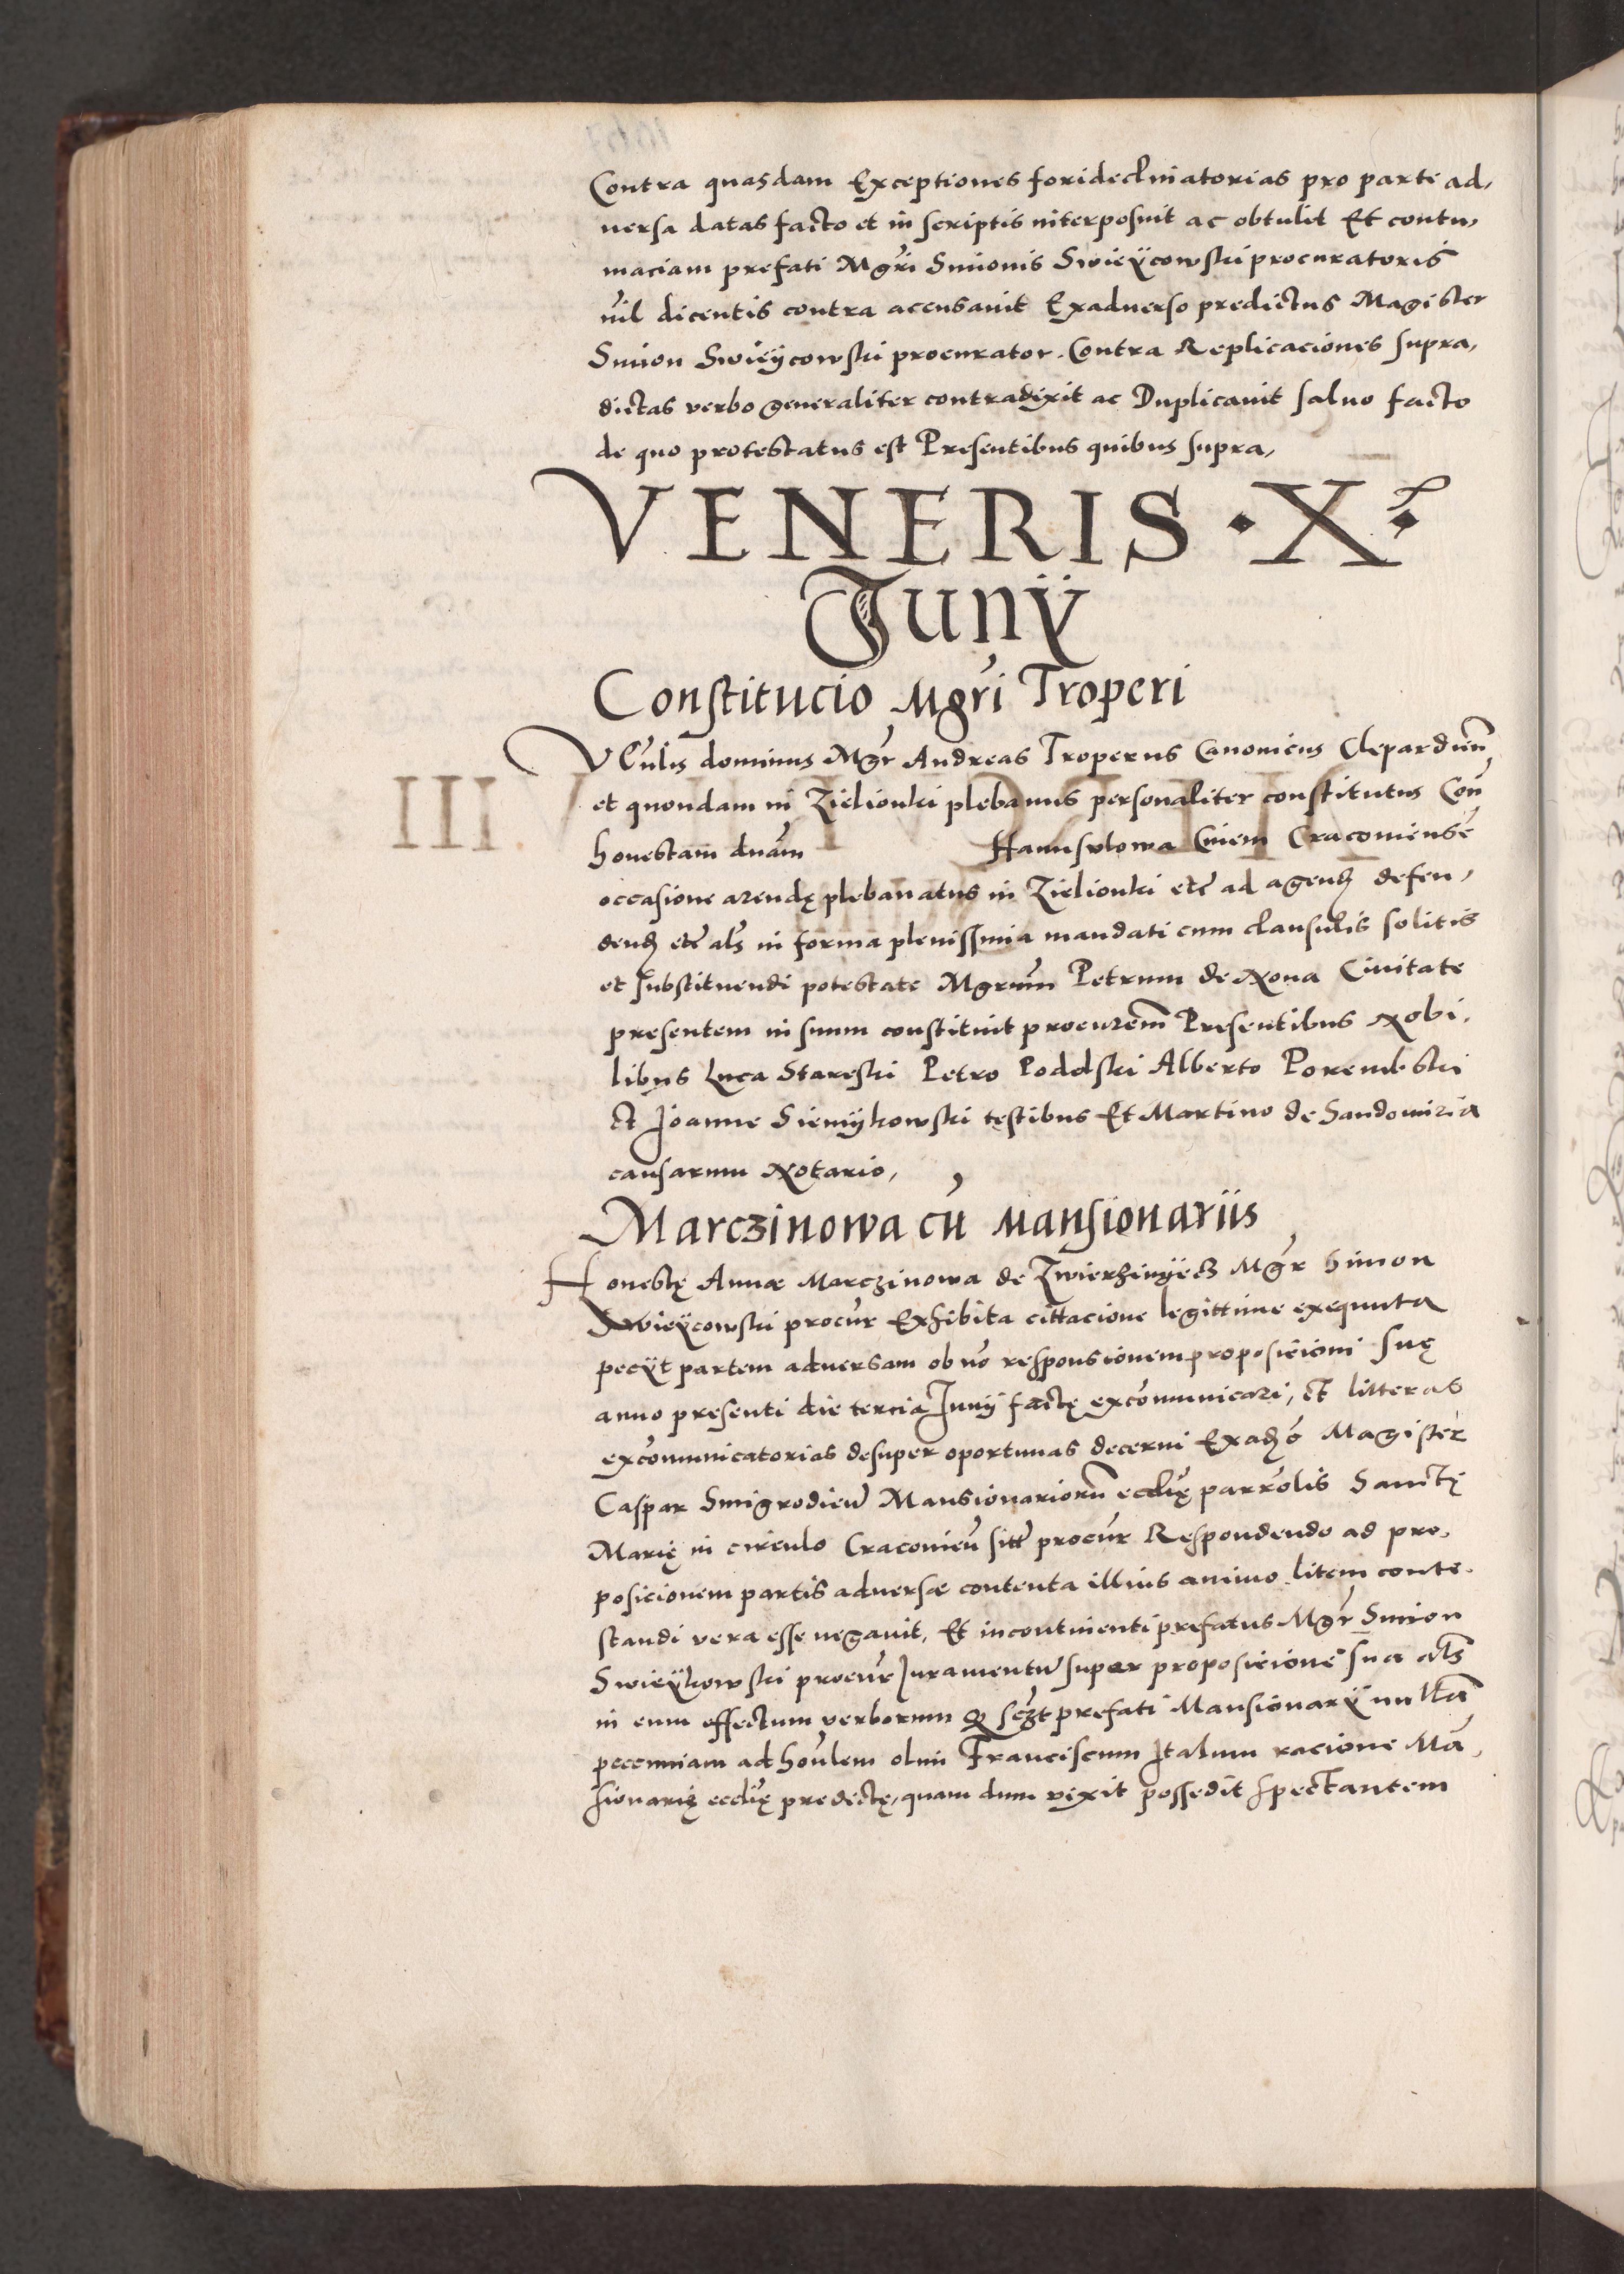 Contra quasdam Exceptiones forideclinatorias pro parte ad,
uersa datas facto et in scriptis interposuit ac obtulit Et contu,
maciam prefati Mgri Simonis Swieÿcowski procuratoris
nil dicentis contra accusauit Exaduerso predictus Magister
Simon Swieÿcowski procurator. Contra Replicaciones supra,
dictas verbo generaliter contradixit ac Duplicauit saluo facto
de quo protestatus est Presentibus quibus supra,
VENERIS · X ·
Junÿ
Constitucio Mgri Troperi
Venlis dominus Mgr Andreas Troperus Canonicus Clepardien
et quondam in Zielionki plebanus personaliter constitutus Con
honestam dnam Hanuslowa Ciuem Cracouiense
occasione arendę plebanatus in Zielionki etc ad agend defen,
dend etc als in forma plenissima mandati cum clausulis solitis
et substituendi potestate Mgrum Petrum de Noua Ciuitate
presentem in suum constituit procurem Presentibus Nobi,
libus Luca Stareski Petro Podolski Alberto Porembski
et Joanne Sienÿkowski testibus Et Martino de Sandomiria
causarum Notario,
Marczinowa cū Mansionariis
Honestę Annæ Marczinowa de Zwierzinÿecz Mgr Simon
Swieÿcowski procur Exhibita cittacione legittime exequuta
pecÿt partem aduersam ob no responsionem proposicioni suę
anno presenti die tercia Junÿ factę excomunicari, et litteras
excomunicatorias desuper oportunas decerni Exado Magister
Caspar Smigrodien Mansionariorū ecclię parrolis Sanctę
Marię in circulo Cracouien sitt procur Respondendo ad pro,
posicionem partis aduersæ contenta illius animo litem conte,
standi vera esse negauit, Et incontinenti prefatus Mgr Simon
Swieÿkowski procur Juramentū super proposicione sua als
in eum effectum verborum Q sczt prefati Mansionarÿ nullā
peccuniam ad honlem olim Franciscum Italum racione Mā,
sionarię ecclię predictę, quam dum vixit possedit spectantem